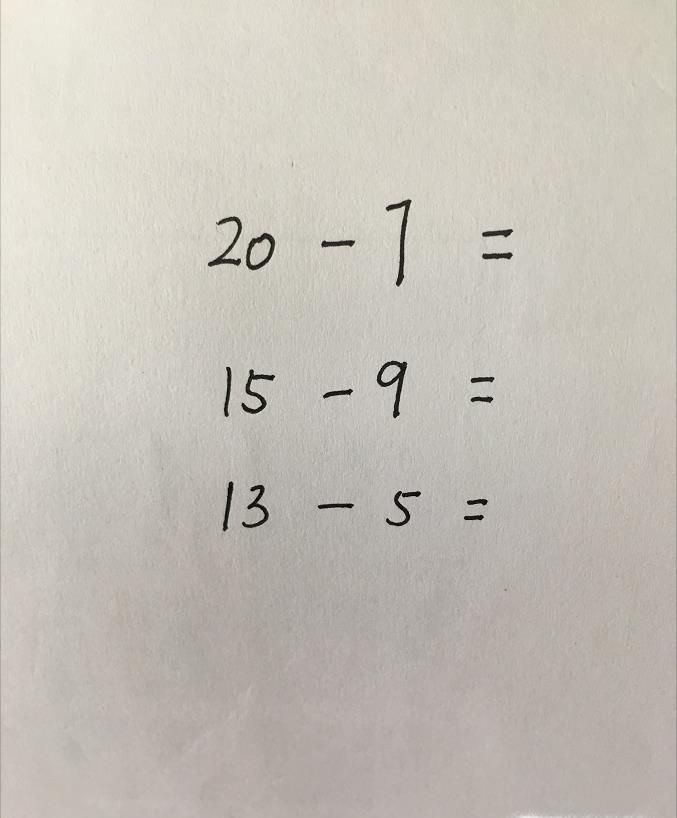 20 - 7 =
15 - 9 =
13 - 5 =